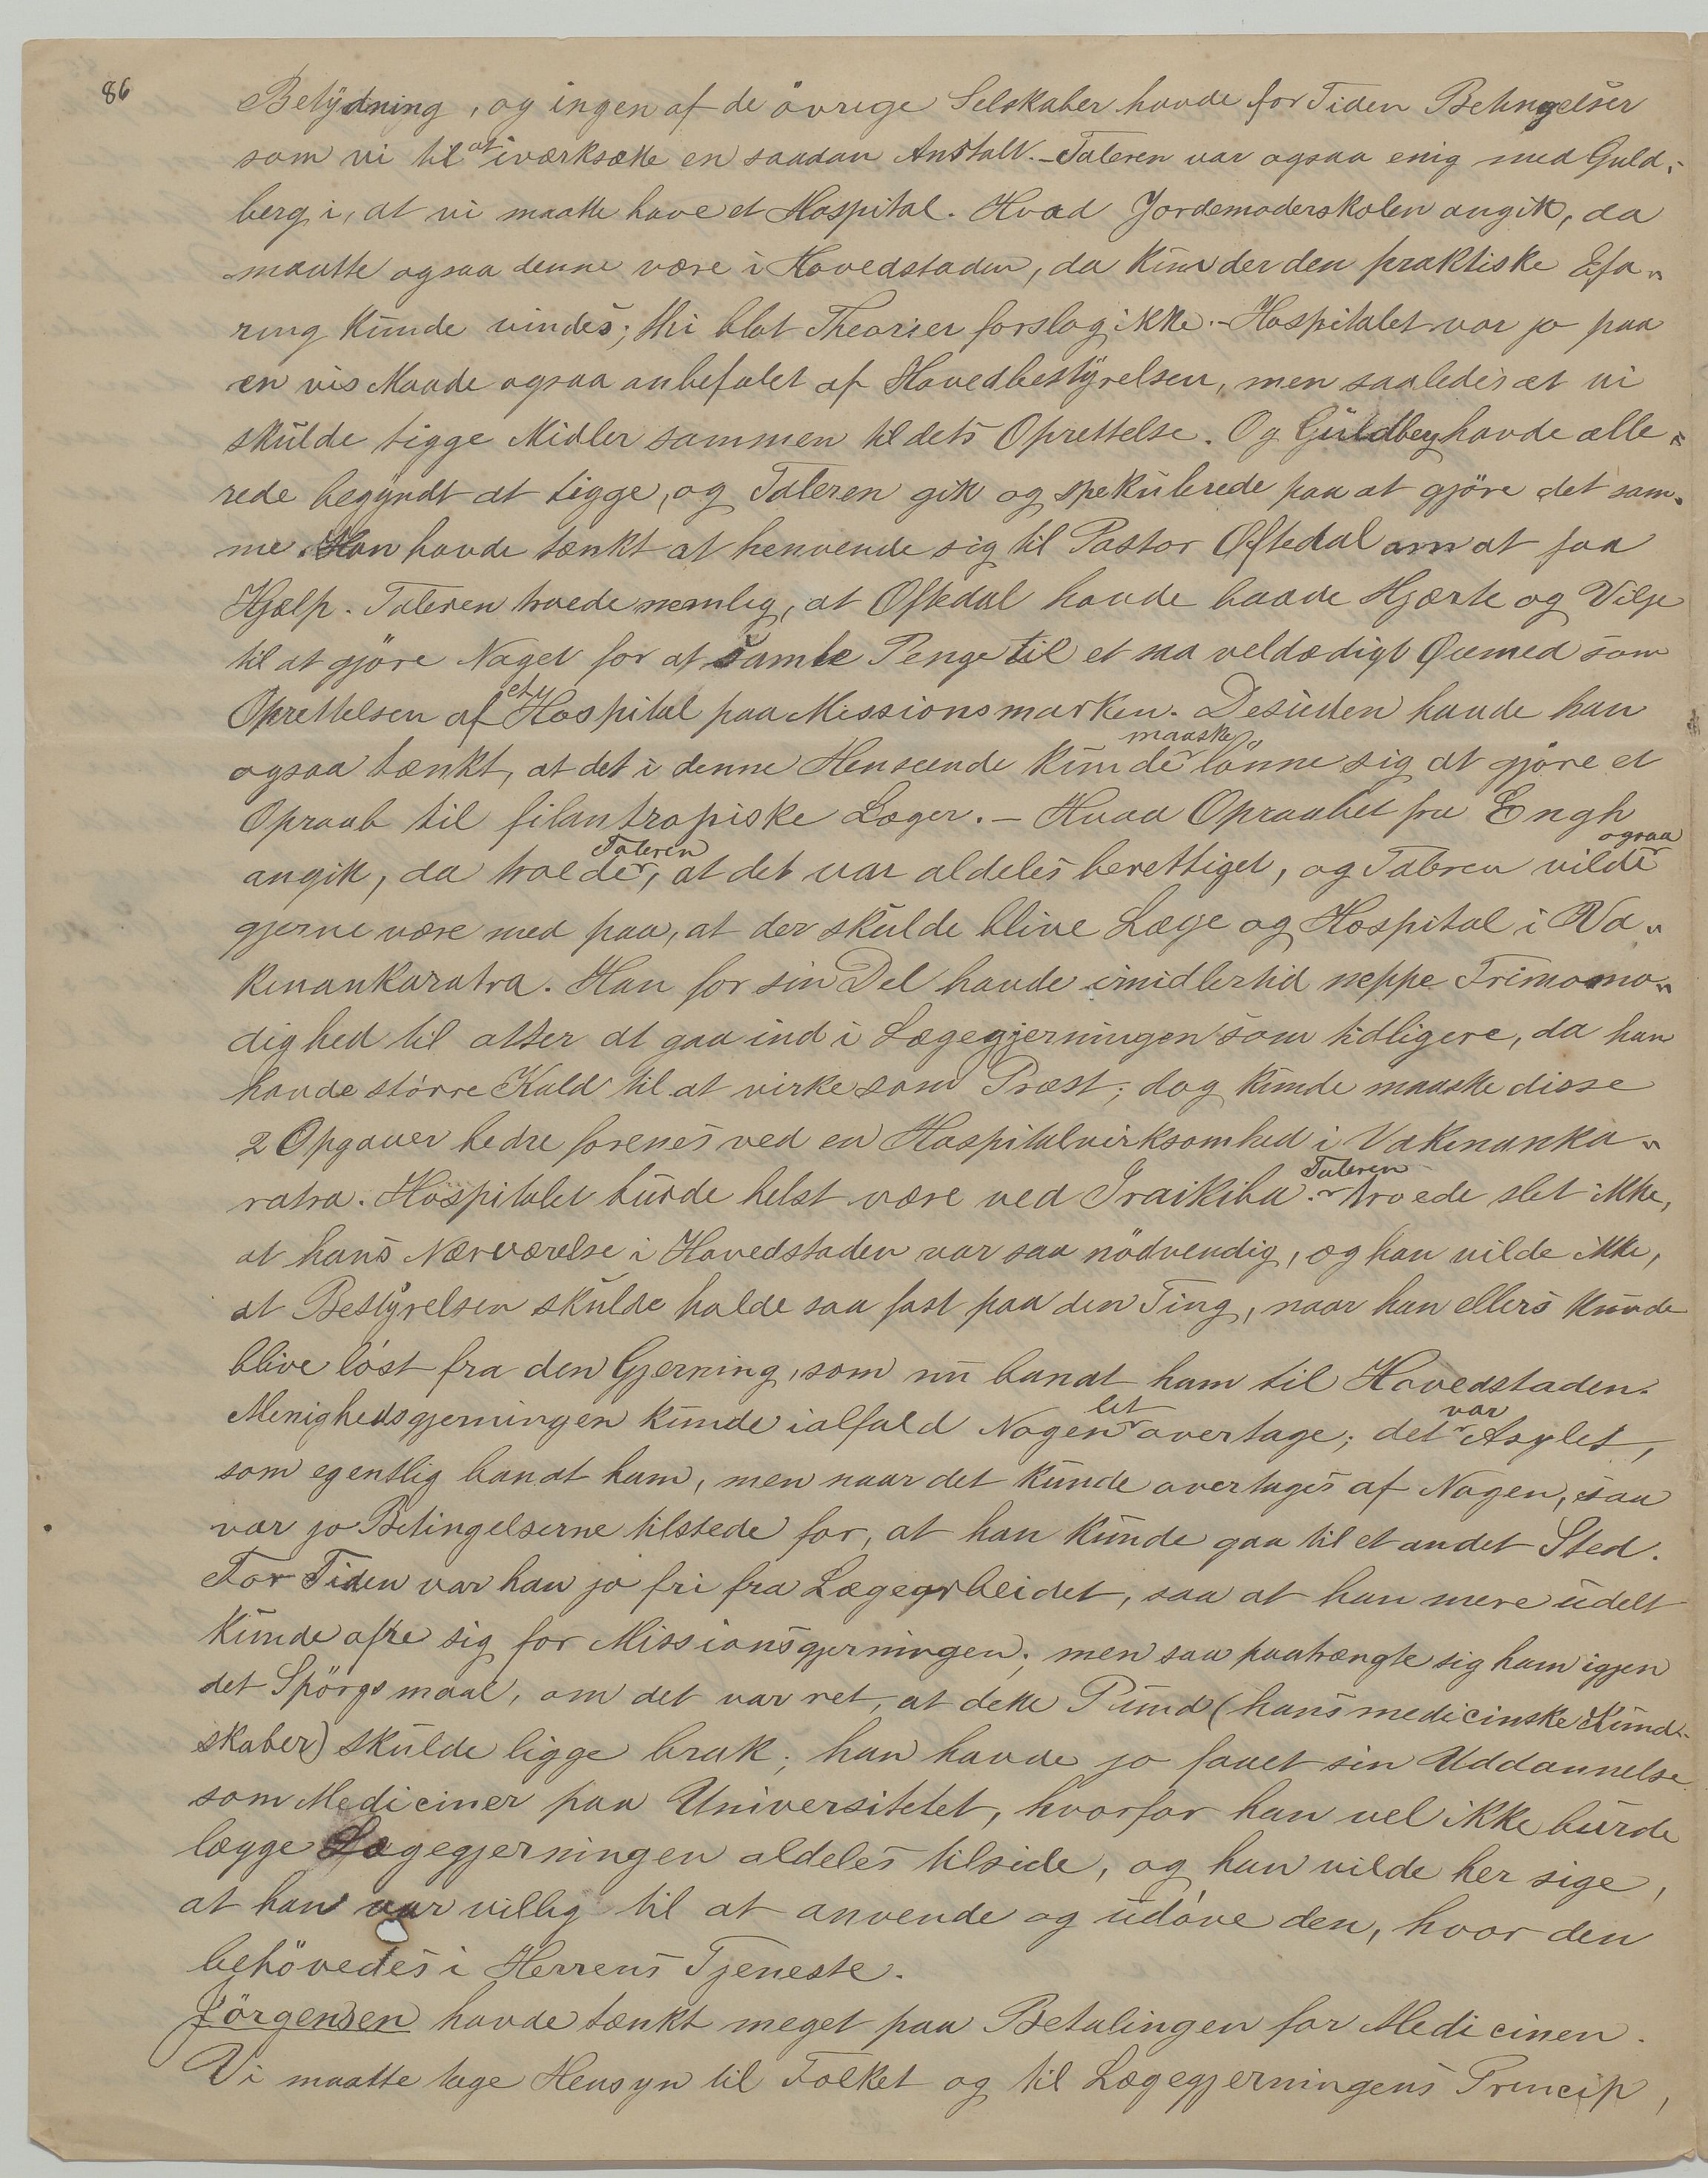 86
Betydning, og ingen af de övrige Selskaber havde for Tiden Betingelser
som vi til at iværksætte en saadan Anstalt. - Taleren var ogsaa enig med Guld-
berg i, at vi maatte have et Hospital. Hvad Jordemoderskolen angik, da
maatte ogsaa denne være i Hovedstaden, da kun der den praktiske Efa-
ring kunde vindes; thi blot Theorier forslog ikke. - Hospitalet var jo paa
en vis Maade ogsaa anbefalet af Hovedbestyrelsen, men saaledes at vi
skulde tigge Midler sammen til dets Oprettelse. Og Guldberg havde alle-
rede begyndt at tigge, og Taleren gik og spekulerede paa at gjöre det sam-
me. Han havde tænkt at henvende sig til Pastor Oftedal om at faa
Hjælp. Taleren troede nemlig, at Oftedal havde baade Hjærte og Vilje
til at gjöre Noget for at samle Penge til et saa veldædigt Øiemed som
Oprettelsen af et Hospital paa Missionsmarken. Desuden havde han
ogsaa tænkt, at det i denne Henseende kunde maaske lönne sig at gjöre et
Opraab til filantropiske Læger. - Hvad Opraabet fra Engh
angik, da troede Taleren, at det var aldeles berettiget, og Taleren vilde ogsaa
gjerne være med paa, at der skulde blive Læge og Hospital i Va-
kinankaratra. Han for sin Del havde imidlertid neppe Frimomo-
dighed til atter at gaa ind i Lægegjerningen som tidligere, da han
havde större Kald til at virke som Præst; dog kunde maaske disse
2 Opgaver bedre forenes ved en Hospitalvirksomhed i Vakinanka-
ratra. Hospitalet burde helst være ved Iraikiba. Taleren troede slet ikke,
at hans Nærværelse i Hovedstaden var saa nödvendig, og han vilde ikke,
at Bestyrelsen skulde holde saa fast paa den Ting, naar han ellers kunde
blive löst fra den Gjerning, som nu bandt ham til Hovedstaden.
Menighedsgjerningen kunde ialfald Nogen let overtage; det var Asylet,
som egentlig bandt ham, men naar det kunde overtages af Nogen, saa
var jo Betingelserne tilstede for, at han kunde gaa til et andet Sted.
For Tiden var han jo fri fra Lægearbeidet, saa at han mere udelt
kunde ofre sig for Missionsgjerningen; men saa paatrængte sig ham igjen
det Spörgsmaal, om det var ret, at dette Pund (hans medicinske Kund-
skaber) skulde ligge brak; han havde jo faaet sin Uddannelse
som Mediciner paa Universitetet, hvorfor han vel ikke burde
lægge Lægegjerningen aldeles tilside, og han vilde her sige,
at han var villig til at anvende og udöve den, hvor den
behövedes i Herrens Tjeneste.
Jörgensen havde tænkt meget paa Betalingen for Medicinen.
Vi maatte tage Hensyn til Folket og til Lægegjerningens Princip,